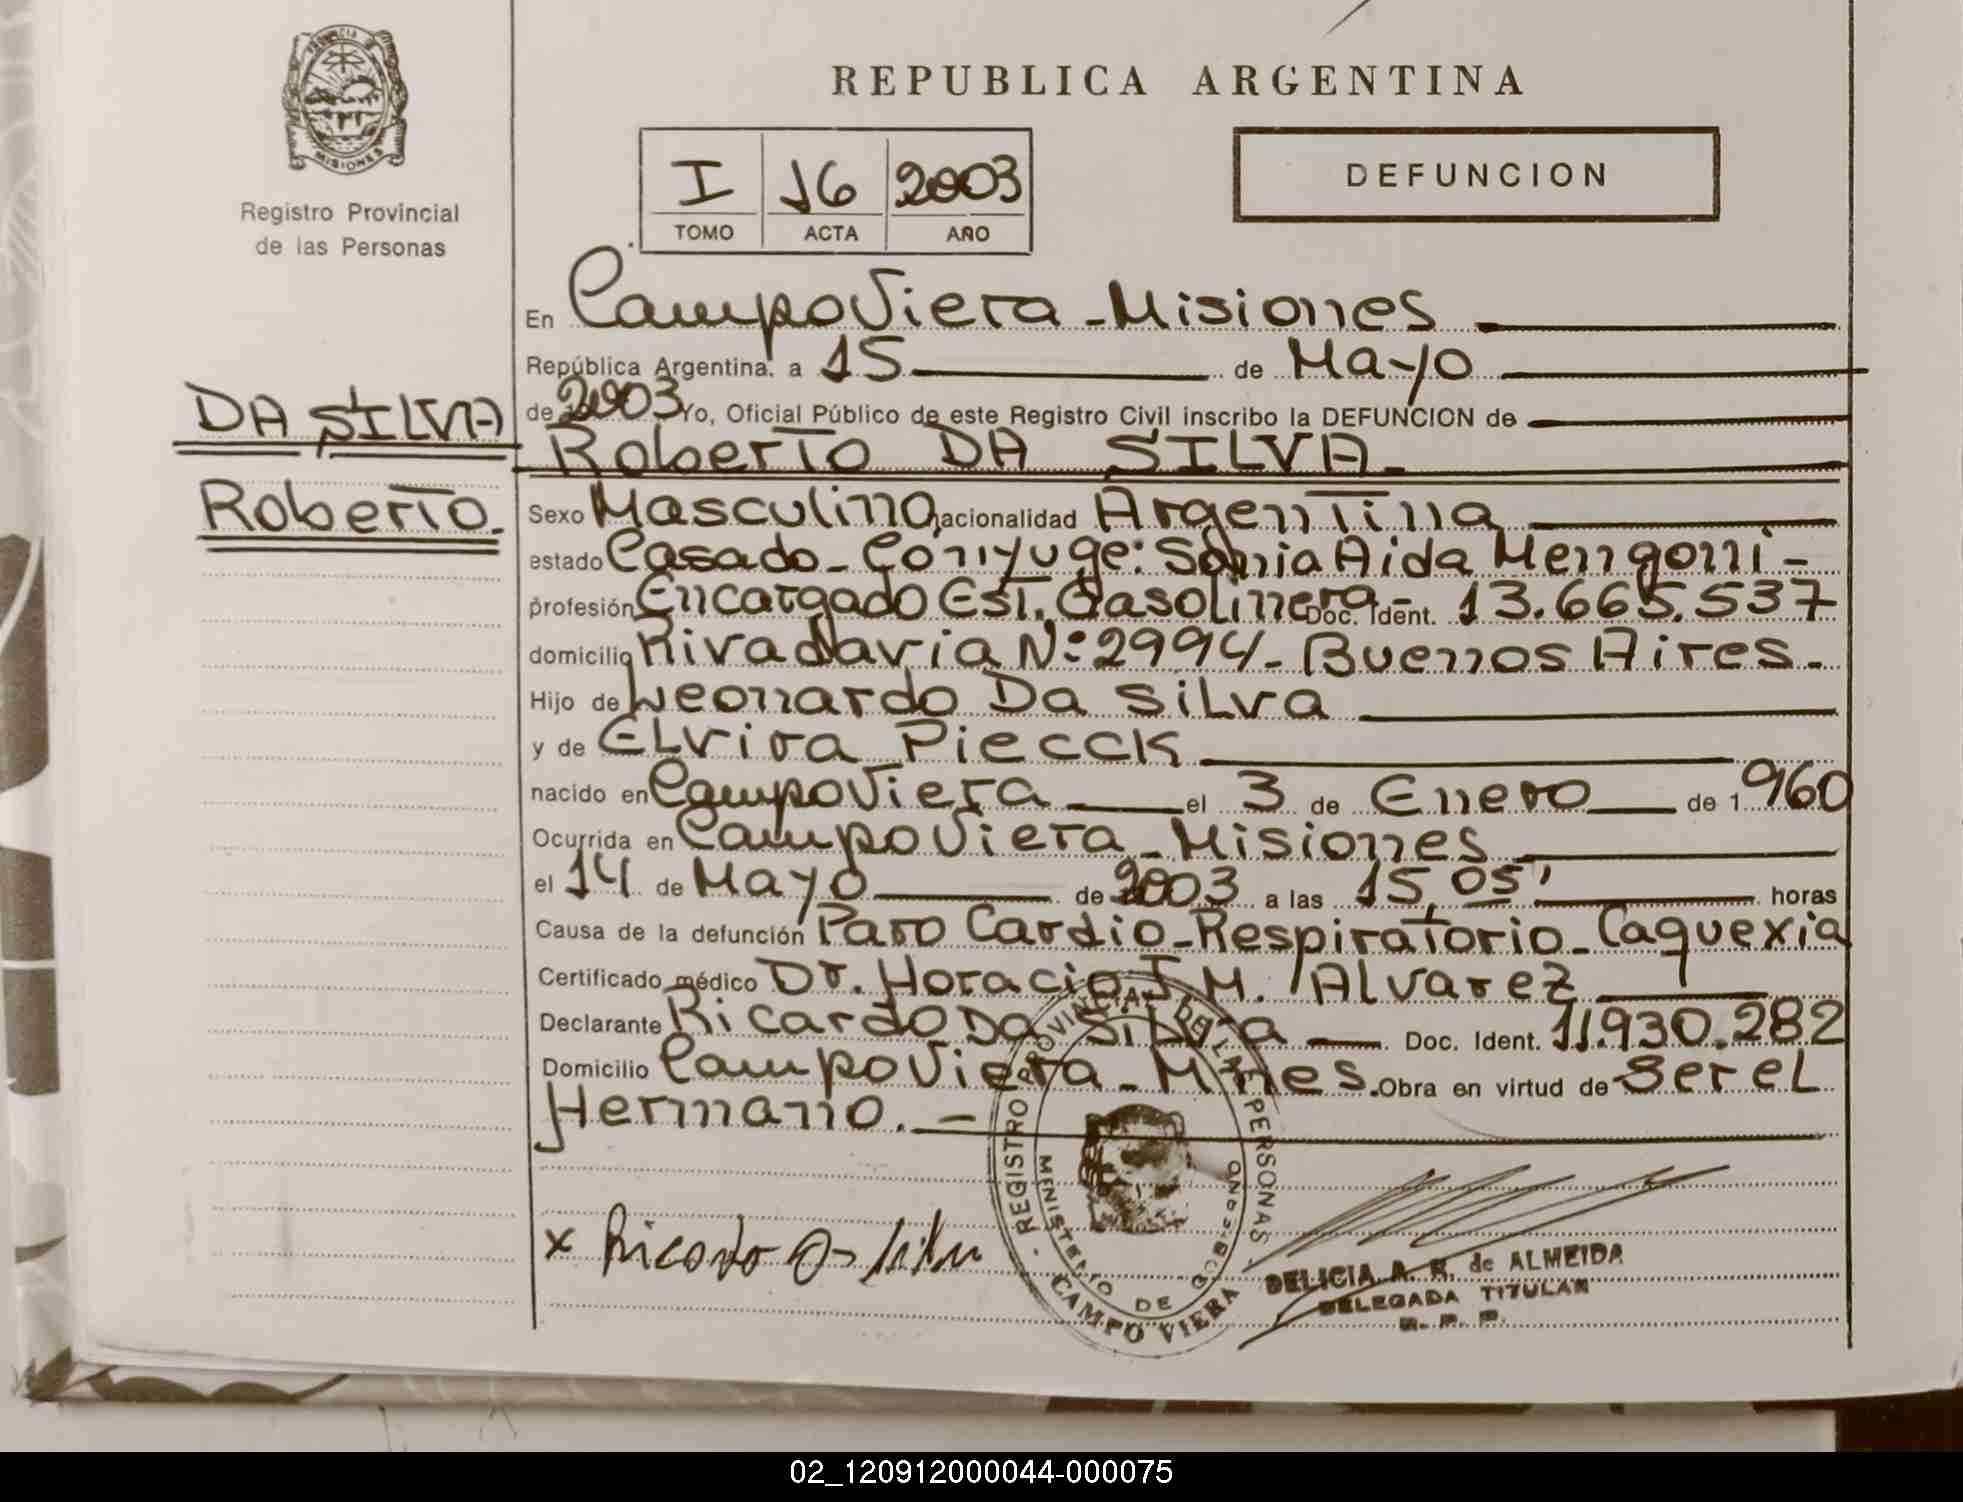 PROVINCIA DE
MISIONES
Registro Provincial
de las Personas
DA SILVA
Roberto.
REPUBLICA ARGENTINA
I 16 2003
TOMO ACTA AÑO
DEFUNCION
En Campo Viera - Misiones
República Argentina, a 15 de Mayo
de 2003 Yo, Oficial Público de este Registro Civil inscribo la DEFUNCION de
Roberto DA SILVA.
Sexo Masculino nacionalidad Argentina
estado Casado - Cónyuge: Sonia Aida Mengoni -
profesión Encargado Est. Gasolinera - Doc. Ident. 13.665.537
domicilio Rivadavia Nº: 2994 - Buenos Aires -
Hijo de Leonardo Da Silva
y de Elvira Piecck
nacido en Campo Viera el 3 de Enero de 1960
Ocurrida en Campo Viera - Misiones
el 14 de Mayo de 2003 a las 15,05' horas
Causa de la defunción Paro Cardio-Respiratorio - Caquexia
Certificado médico Dr. Horacio J M. Alvarez
Declarante Ricardo Da Silva Doc. Ident. 11.930.282
Domicilio Campo Viera - Mnes. Obra en virtud de Ser el
Hermano. -
x Ricardo Da Silva
REGISTRO PROVINCIAL DE LAS PERSONAS
MINISTERIO DE GOBIERNO
CAMPO VIERA
DELICIA A. R. de ALMEIDA
DELEGADA TITULAR
R. P. P.
02_120912000044-000075